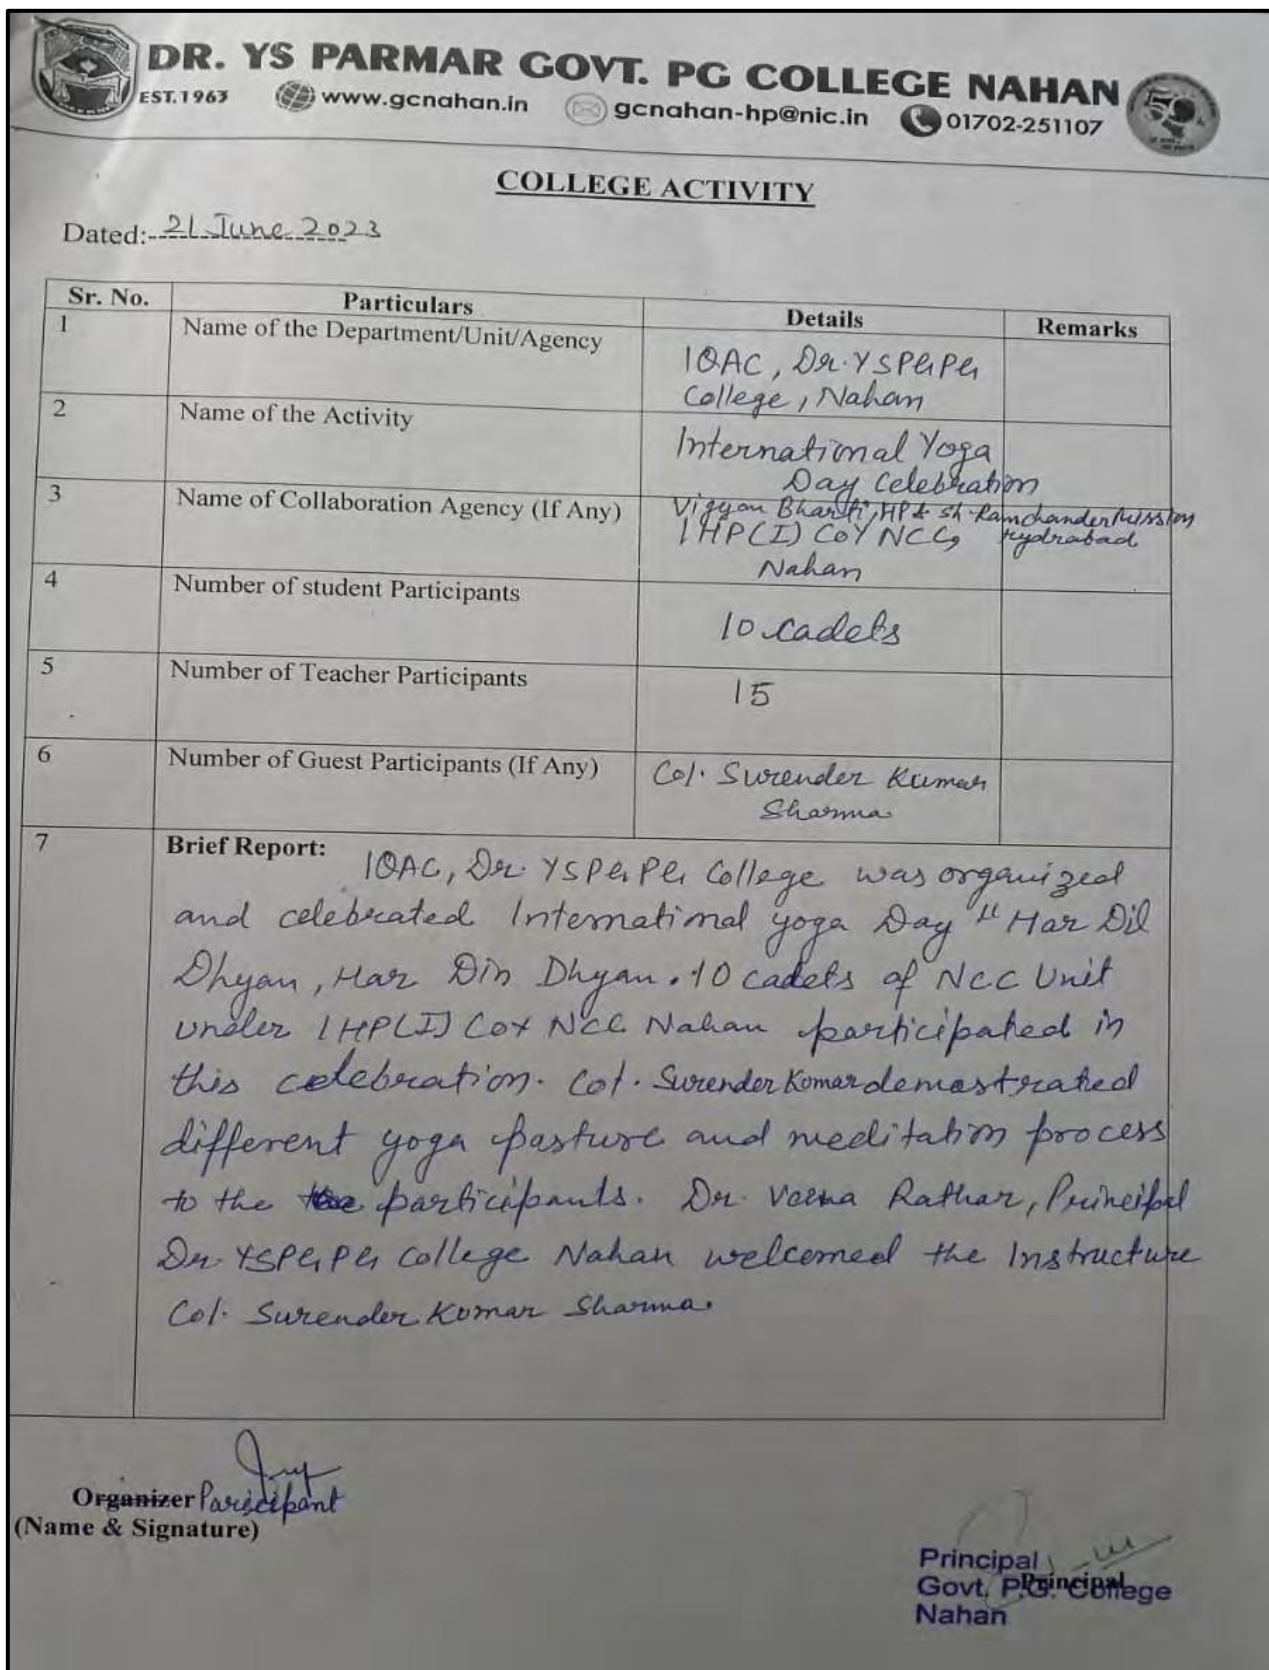 DR. YS PARMAR GOVT. PG COLLEGE NAHAN
EST.1963 www.gcnahan.in gcnahan-hp@nic.in 01702-251107
COLLEGE ACTIVITY
Dated: 21 June 2023
Sr. No. Particulars Details Remarks
1 Name of the Department/Unit/Agency
IQAC, Dr. YSPGPG
College, Nahan
2 Name of the Activity
International Yoga
Day Celebration
3 Name of Collaboration Agency (If Any)
Vigyan Bharti, HP & Sh. Ramchander Mission
1HP(I) COY NCC, Hydrabad
Nahan
4 Number of student Participants
10 cadets
5 Number of Teacher Participants
15
6 Number of Guest Participants (If Any)
Col. Surender Kumar
Sharma
7 Brief Report:
IQAC, Dr. YSPGPG College was organized
and celebrated International yoga Day " Har Dil
Dhyan, Har Din Dhyan. 10 cadets of NCC Unit
under 1HP(I) Coy NCC Nahan participated in
this celebration. Col. Surender Komar demastrated
different yoga pasture and meditation process
to the participants. Dr. Veena Rathar, Principal
Dr. YSPGPG College Nahan welcomed the Instructure
Col. Surender Komar Sharma.
Organizer Paricipant
(Name & Signature)
Principal
Govt. P.G. College
Principal
Nahan